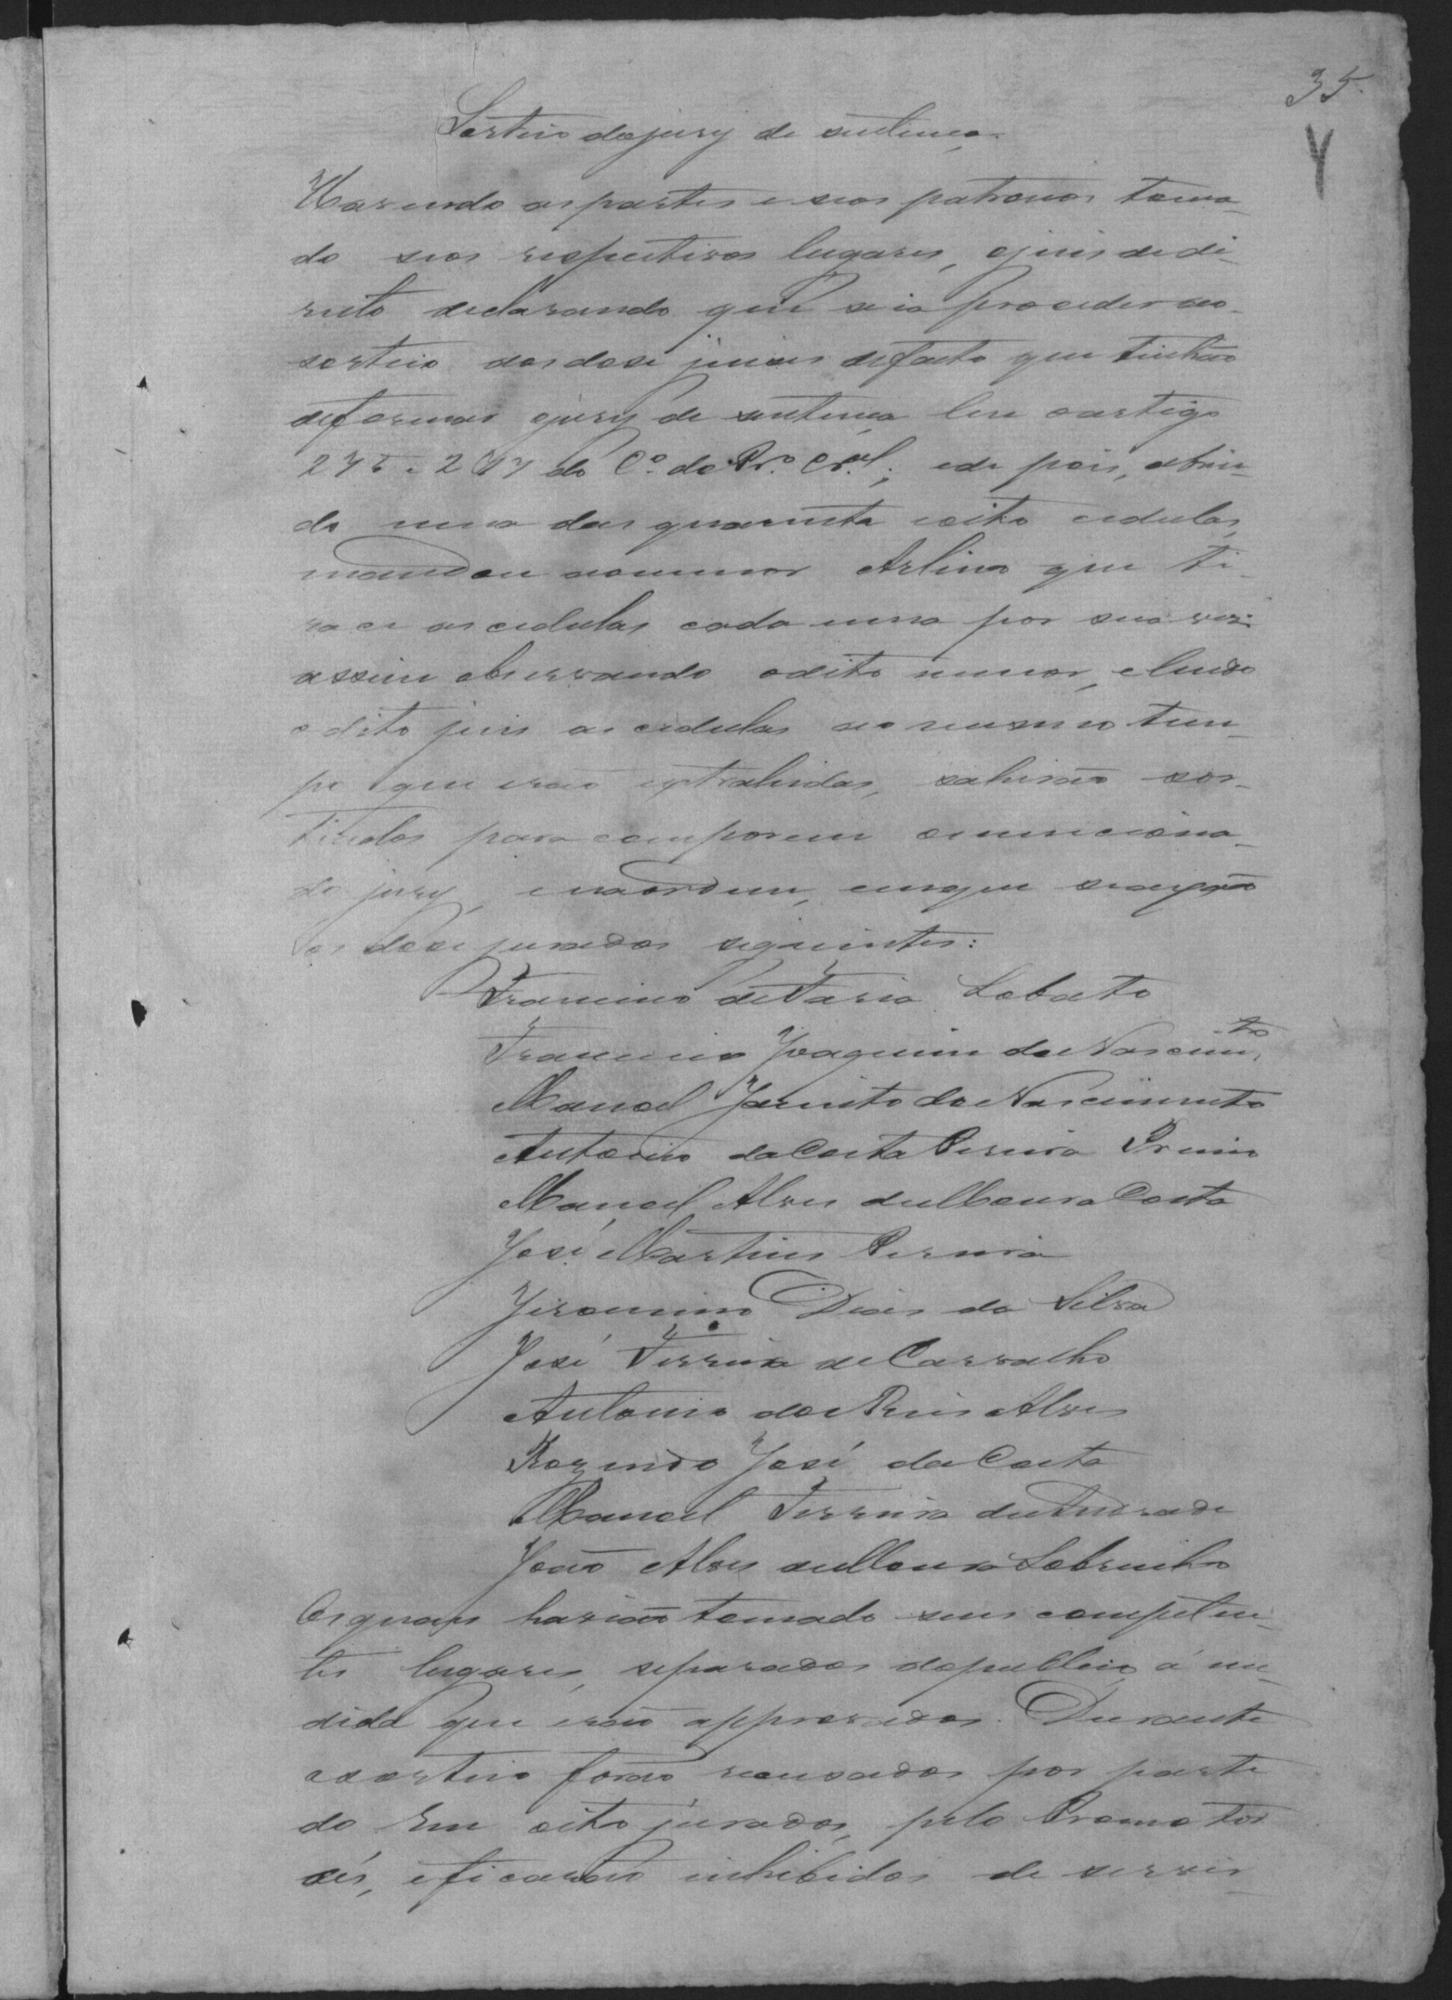 35
Sorteio do jury de sentença
Havendo as partes e seos patronos toma-
do seos respectivos lugares, o juis de di-
reito declarando que se ia proceder ao
sorteio dos dose juises de facto que tinhão
de formar o jury de sentença leu o artigo
275 e 277 do C.º do Pr.º Cr.al; e de pois, abrin-
do uma das quarenta e oito cedulas,
mandou ao menor Arlino que ti-
race as cedulas cada uma por sua vez:
assim observando o dito menor, e lendo
o dito juis as cedulas ao mesmo tem-
po que erão extrahidas, sahirão sor-
tiados para comporem o menciona-
do jury, e na ordem, em que se
os dose jurados seguintes:
Francisco de Faria Lobato
Francisco Joaquim do Nascim.to
Manoel Jacinto do Nascimento
Antonio da Costa Pereira Primo
Manoel Alves de Moura Costa
José Martins Pereira
Jeronimo Dias da Silva
José Ferreira de Carvalho
Antonio dos Reis Alves
Rozendo José da Costa
Manoel Ferreira de Andrade
João Alves de Moura Sobrinho
Os quaes havião tomado seus competen-
tes lugares, separados do publico, á me-
dida que erão approvados. Durante
o sorteio forão recusados por parte
do Reu oito jurados, pelo Promotor
seis, e ficarão inhibidos de servir